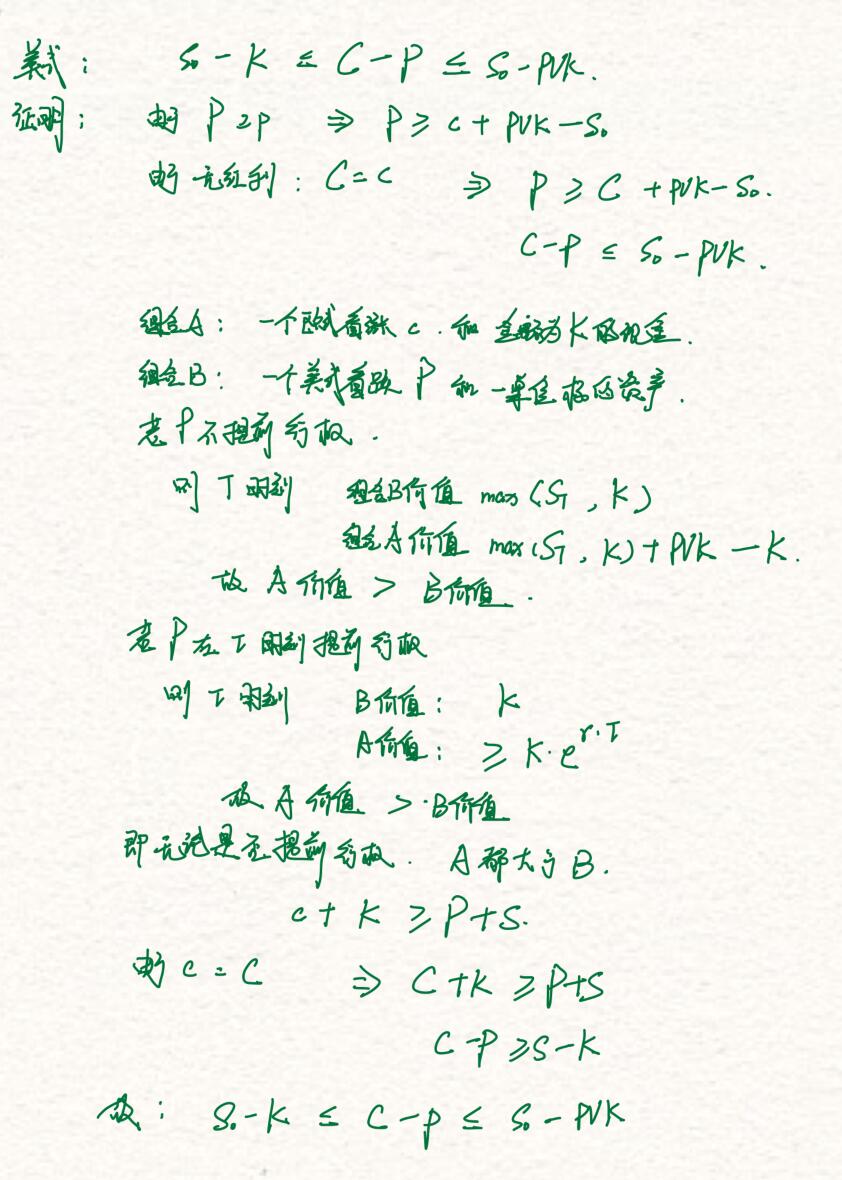 美式： S₀ - K ≤ C - P ≤ S₀ - PVK.
证明： 由于 P ≥ p ⇒ P ≥ c + PVK - S₀
由于 无红利： C = c ⇒ P ≥ C + PVK - S₀.
C - P ≤ S₀ - PVK.
组合A： 一个欧式看涨 c. 和 金额为K的现金.
组合B： 一个美式看跌 P 和 一单位标的资产.
若 P 不提前行权.
则 T 时刻 组合B价值 max(S_T, K)
组合A价值 max(S_T, K) + PVK - K.
故 A 价值 > B价值.
若 P 在 τ 时刻提前行权
则 τ 时刻 B价值： K
A价值： ≥ K·e^{r·τ}
故 A 价值 > B价值
即无论是否提前行权. A 都大于 B.
c + K ≥ P + S.
由于 c = C ⇒ C + K ≥ P + S
C - P ≥ S - K
故： S₀ - K ≤ C - P ≤ S₀ - PVK